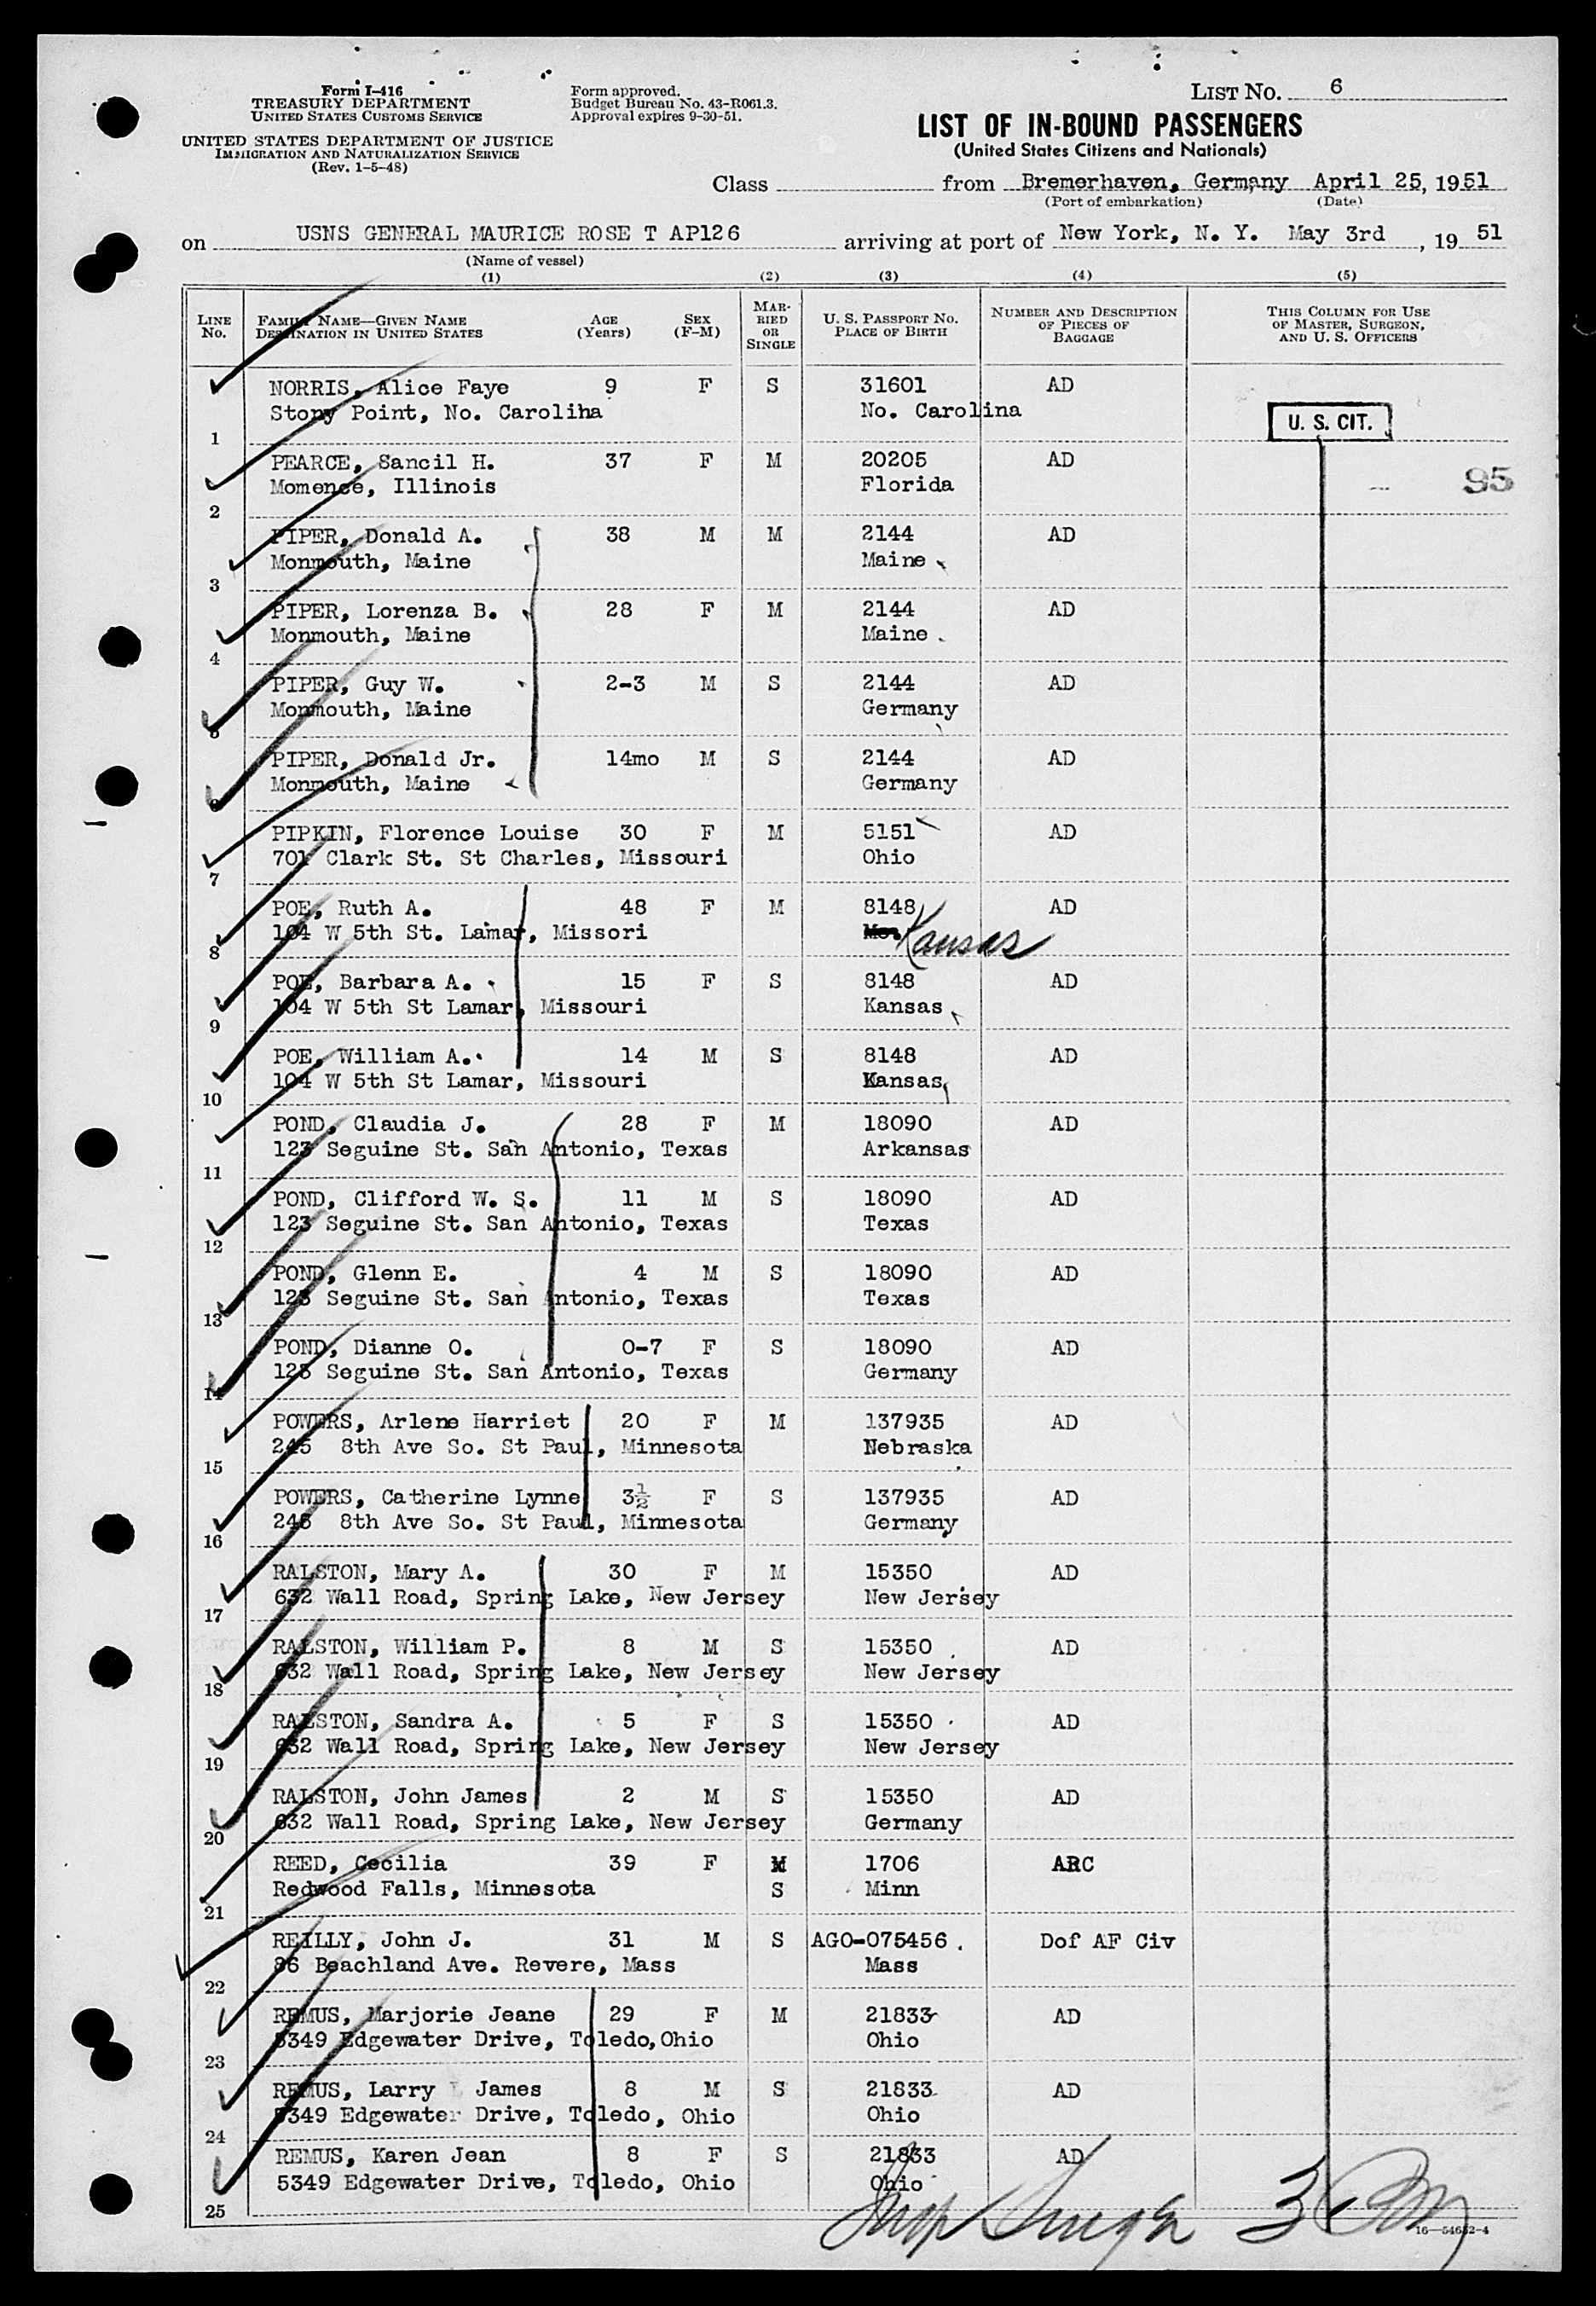 Form I-416
TREASURY DEPARTMENT
UNITED STATES CUSTOMS SERVICE
UNITED STATES DEPARTMENT OF JUSTICE
IMMIGRATION AND NATURALIZATION SERVICE
(Rev. 1-5-48)
Form approved.
Budget Bureau No. 43-R061.3.
Approval expires 9-30-51.
LIST NO. 6
LIST OF IN-BOUND PASSENGERS
(United States Citizens and Nationals)
Class from Bremerhaven, Germany April 25, 1951
(Port of embarkation) (Date)
on USNS GENERAL MAURICE ROSE T AP126 arriving at port of New York, N. Y. May 3rd, 19 51
(Name of vessel)
(1) (2) (3) (4) (5)
LINE NO. FAMILY NAME—GIVEN NAME DESTINATION IN UNITED STATES AGE (Years) SEX (F-M) MARRIED OR SINGLE U. S. PASSPORT NO. PLACE OF BIRTH NUMBER AND DESCRIPTION OF PIECES OF BAGGAGE THIS COLUMN FOR USE OF MASTER, SURGEON, AND U. S. OFFICERS
NORRIS, Alice Faye 9 F S 31601 AD
Stony Point, No. Caroliha No. Carolina U. S. CIT.
1
PEARCE, Sancil H. 37 F M 20205 AD
Momence, Illinois Florida 95
2
PIPER, Donald A. 38 M M 2144 AD
Monmouth, Maine Maine
3
PIPER, Lorenza B. 28 F M 2144 AD
Monmouth, Maine Maine
4
PIPER, Guy W. 2-3 M S 2144 AD
Monmouth, Maine Germany
5
PIPER, Donald Jr. 14mo M S 2144 AD
Monmouth, Maine Germany
6
PIPKIN, Florence Louise 30 F M 5151 AD
701 Clark St. St Charles, Missouri Ohio
7
POE, Ruth A. 48 F M 8148 AD
104 W 5th St. Lamar, Missori Kansas
8
POE, Barbara A. 15 F S 8148 AD
104 W 5th St Lamar, Missouri Kansas
9
POE, William A. 14 M S 8148 AD
104 W 5th St Lamar, Missouri Kansas
10
POND, Claudia J. 28 F M 18090 AD
123 Seguine St. San Antonio, Texas Arkansas
11
POND, Clifford W. S. 11 M S 18090 AD
123 Seguine St. San Antonio, Texas Texas
12
POND, Glenn E. 4 M S 18090 AD
123 Seguine St. San Antonio, Texas Texas
13
POND, Dianne O. 0-7 F S 18090 AD
123 Seguine St. San Antonio, Texas Germany
14
POWERS, Arlene Harriet 20 F M 137935 AD
245 8th Ave So. St Paul, Minnesota Nebraska
15
POWERS, Catherine Lynne 3½ F S 137935 AD
245 8th Ave So. St Paul, Minnesota Germany
16
RALSTON, Mary A. 30 F M 15350 AD
632 Wall Road, Spring Lake, New Jersey New Jersey
17
RALSTON, William P. 8 M S 15350 AD
632 Wall Road, Spring Lake, New Jersey New Jersey
18
RALSTON, Sandra A. 5 F S 15350 AD
632 Wall Road, Spring Lake, New Jersey New Jersey
19
RALSTON, John James 2 M S 15350 AD
632 Wall Road, Spring Lake, New Jersey Germany
20
REED, Cecilia 39 F M 1706 ARC
Redwood Falls, Minnesota S Minn
21
REILLY, John J. 31 M S AGO-075456 Dof AF Civ
86 Beachland Ave. Revere, Mass Mass
22
REMUS, Marjorie Jeane 29 F M 21833 AD
5349 Edgewater Drive, Toledo, Ohio Ohio
23
REMUS, Larry James 8 M S 21833 AD
5349 Edgewater Drive, Toledo, Ohio Ohio
24
REMUS, Karen Jean 8 F S 21833 AD
5349 Edgewater Drive, Toledo, Ohio Ohio
25
16—54652-4